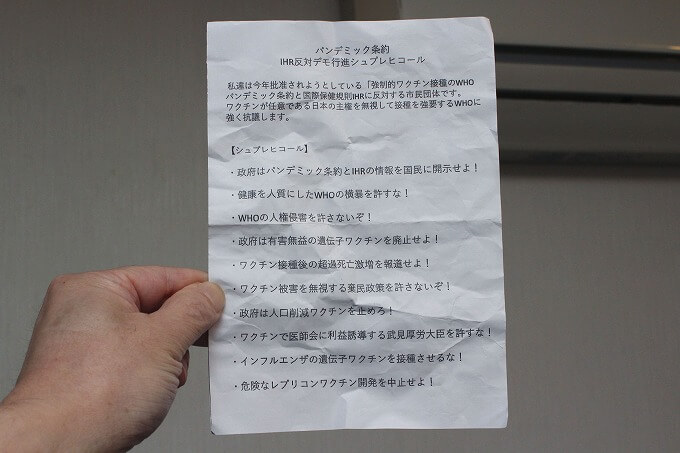 パンデミック条約
IHR反対デモ行進シュプレヒコール
私達は今年批准されようとしている「強制的ワクチン接種のWHO
パンデミック条約と国際保健規則IHRに反対する市民団体です。
ワクチンが任意である日本の主権を無視して接種を強要するWHOに
強く抗議します。
【シュプレヒコール】
・政府はパンデミック条約とIHRの情報を国民に開示せよ！
・健康を人質にしたWHOの横暴を許すな！
・WHOの人権侵害を許さないぞ！
・政府は有害無益の遺伝子ワクチンを廃止せよ！
・ワクチン接種後の超過死亡激増を報道せよ！
・ワクチン被害を無視する棄民政策を許さないぞ！
・政府は人口削減ワクチンを止めろ！
・ワクチンで医師会に利益誘導する武見厚労大臣を許すな！
・インフルエンザの遺伝子ワクチンを接種させるな！
・危険なレプリコンワクチン開発を中止せよ！